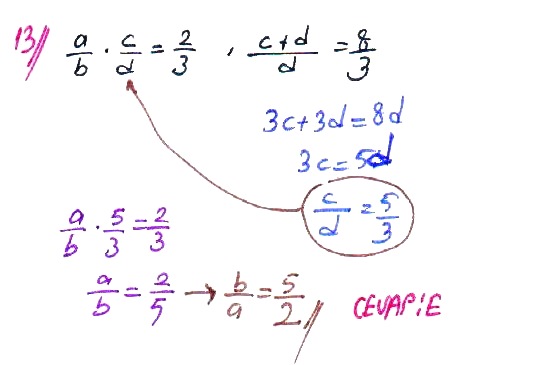 13// a/b · c/d = 2/3 , c+d/d = 8/3
3c+3d=8d
3c=5d
c/d = 5/3
a/b · 5/3 = 2/3
a/b = 2/5 → b/a = 5/2 // CEVAP:E